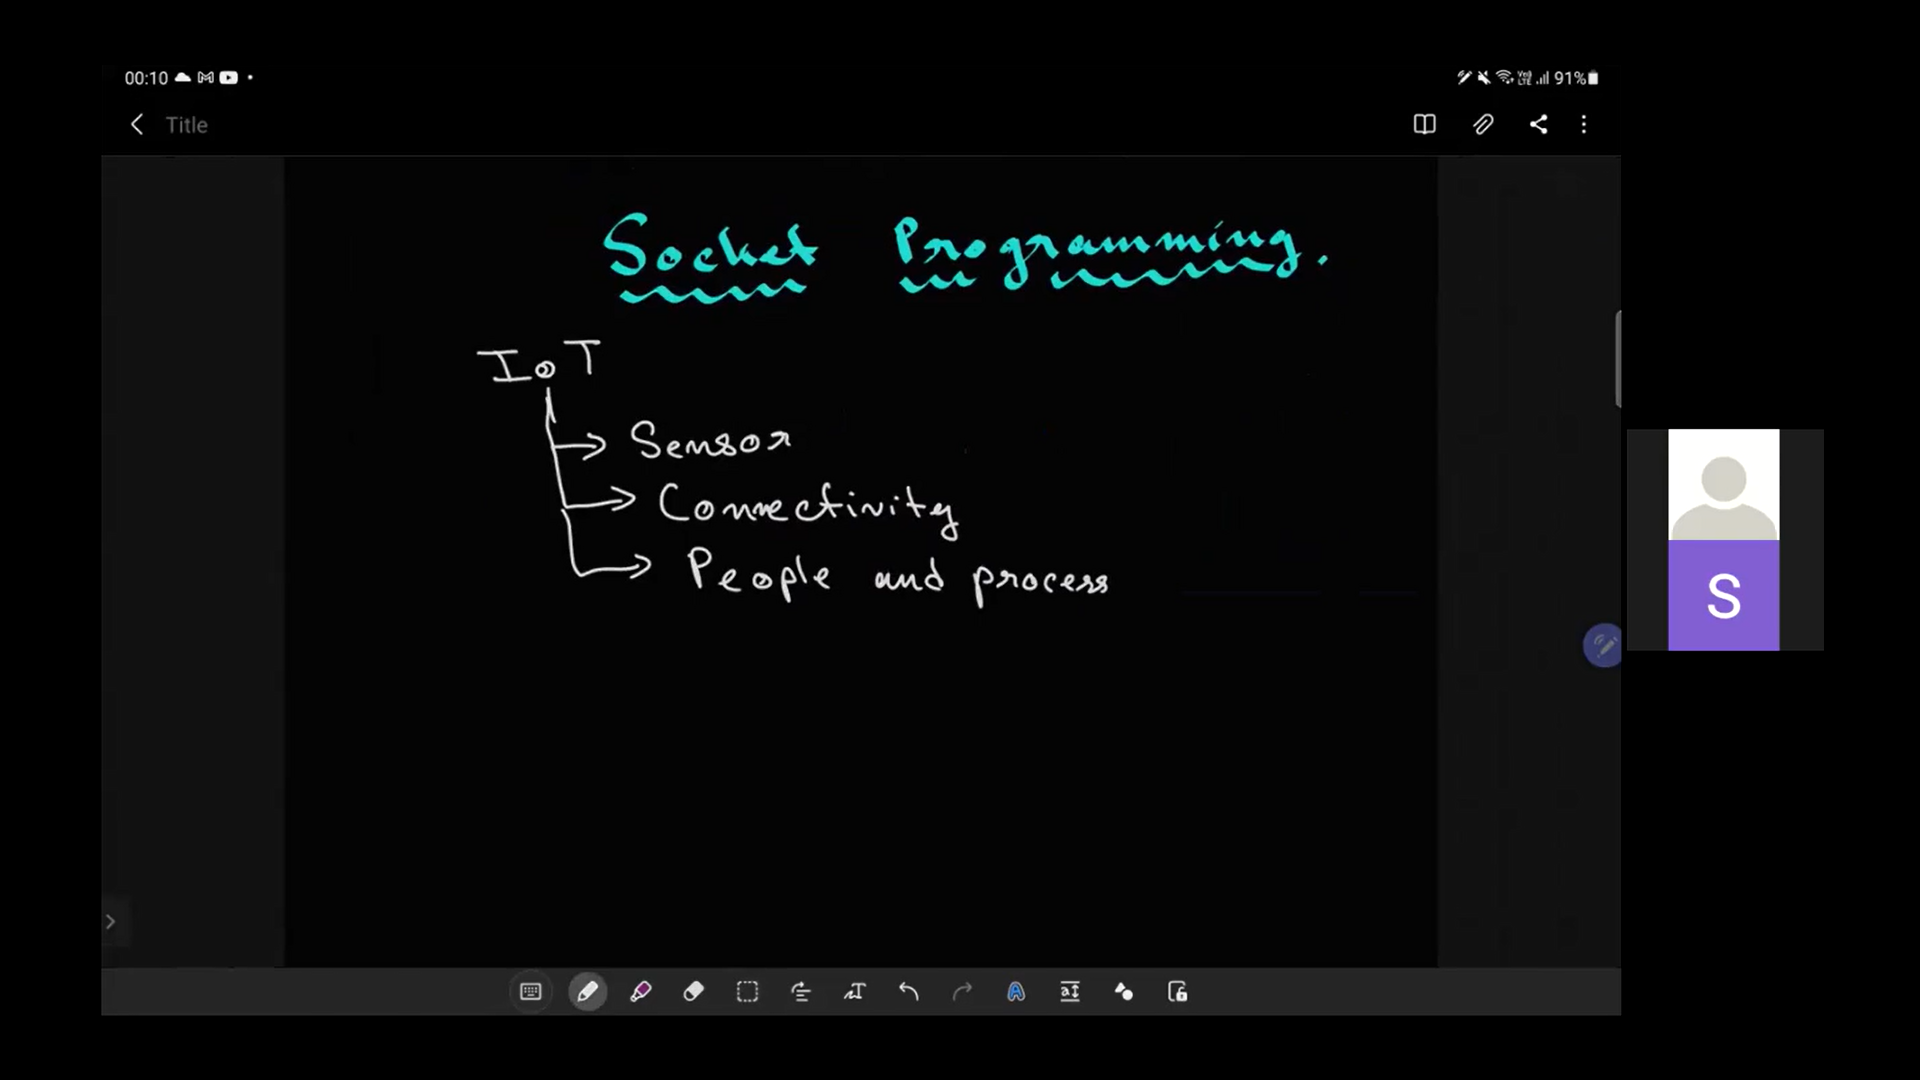 00:10 91%
Title
Socket Programming.
IoT
Sensor
Connectivity
People and process
S